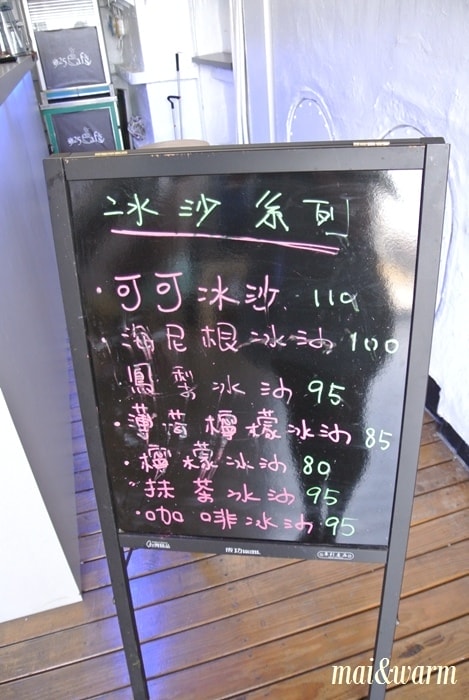 025Café
025Café
冰沙系列
·可可冰沙 110
·海尼根冰沙 100
·鳳梨冰沙 95
·薄荷檸檬冰沙 85
·檸檬冰沙 80
抹茶冰沙 95
·咖啡冰沙 95
mai&warm